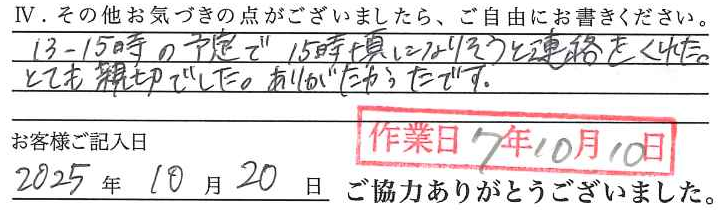 Ⅳ．その他お気づきの点がございましたら、ご自由にお書きください。
13-15時の予定で15時頃になりそうと連絡をくれた。
とても親切でした。ありがたかったです。
お客様ご記入日
作業日 7年10月10日
2025年10月20日 ご協力ありがとうございました。